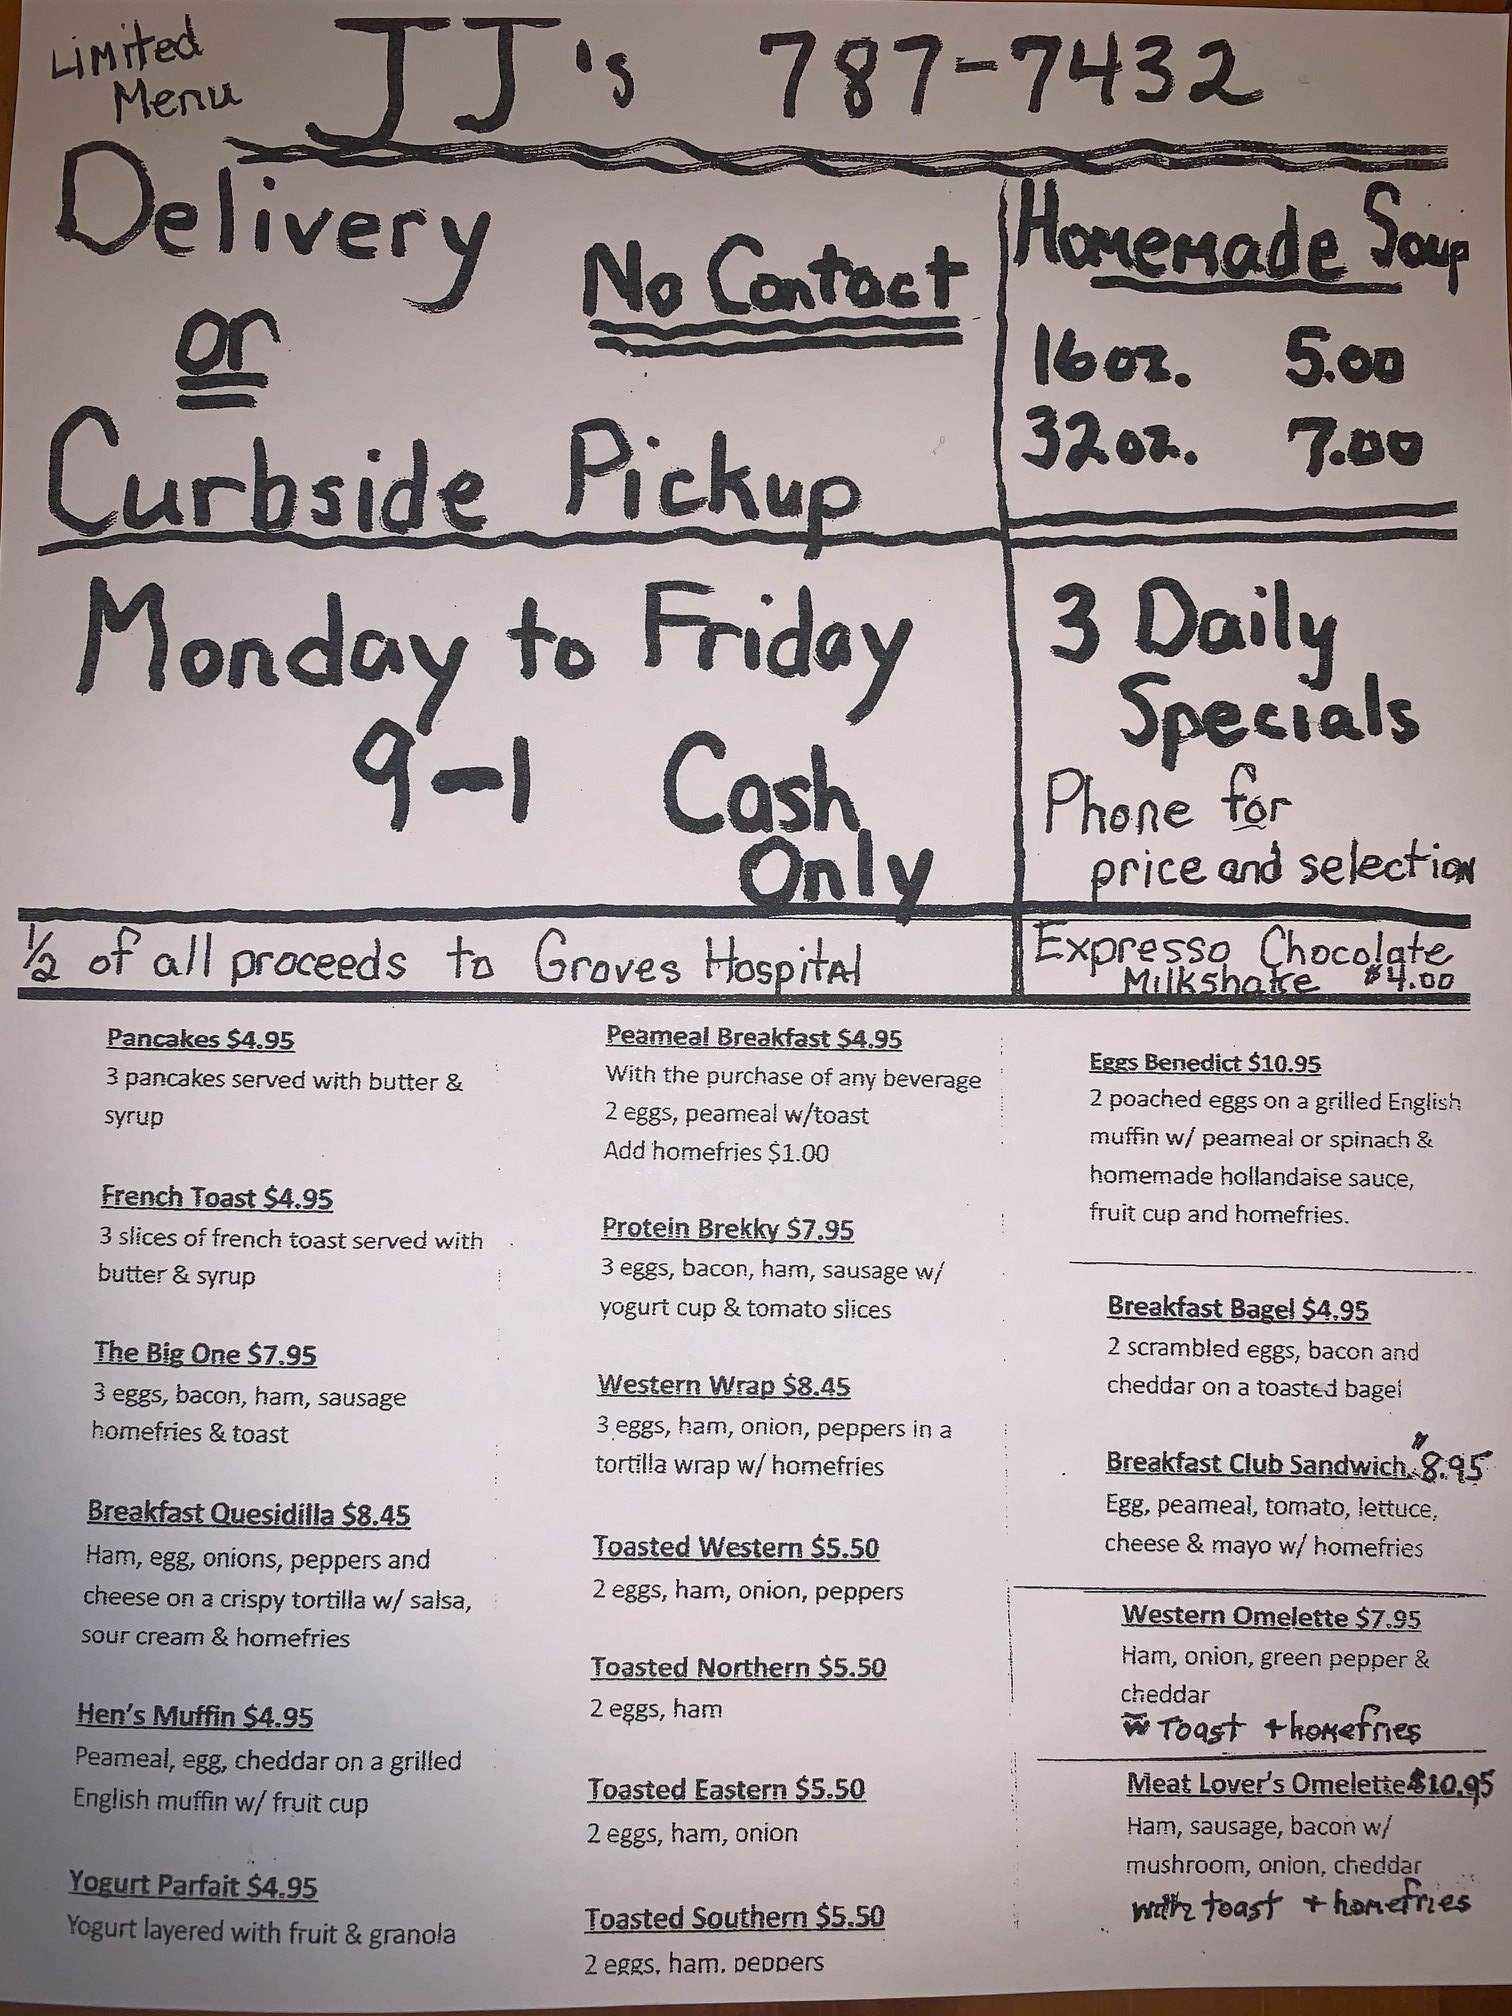 Limited
Menu
JJ's 787-7432
Delivery
or
No Contact
Curbside Pickup
Homemade Soup
16oz. 5.00
32oz. 7.00
Monday to Friday
9-1 Cash
Only
3 Daily
Specials
Phone for
price and selection
1/2 of all proceeds to Groves Hospital
Expresso Chocolate
Milkshake $4.00
Pancakes $4.95
3 pancakes served with butter &
syrup
French Toast $4.95
3 slices of french toast served with
butter & syrup
The Big One $7.95
3 eggs, bacon, ham, sausage
homefries & toast
Breakfast Quesidilla $8.45
Ham, egg, onions, peppers and
cheese on a crispy tortilla w/ salsa,
sour cream & homefries
Hen's Muffin $4.95
Peameal, egg, cheddar on a grilled
English muffin w/ fruit cup
Yogurt Parfait $4.95
Yogurt layered with fruit & granola
Peameal Breakfast $4.95
With the purchase of any beverage
2 eggs, peameal w/toast
Add homefries $1.00
Protein Brekky $7.95
3 eggs, bacon, ham, sausage w/
yogurt cup & tomato slices
Western Wrap $8.45
3 eggs, ham, onion, peppers in a
tortilla wrap w/ homefries
Toasted Western $5.50
2 eggs, ham, onion, peppers
Toasted Northern $5.50
2 eggs, ham
Toasted Eastern $5.50
2 eggs, ham, onion
Toasted Southern $5.50
2 eggs, ham, peppers
Eggs Benedict $10.95
2 poached eggs on a grilled English
muffin w/ peameal or spinach &
homemade hollandaise sauce,
fruit cup and homefries.
Breakfast Bagel $4.95
2 scrambled eggs, bacon and
cheddar on a toasted bagel
Breakfast Club Sandwich $8.95
Egg, peameal, tomato, lettuce,
cheese & mayo w/ homefries
Western Omelette $7.95
Ham, onion, green pepper &
cheddar
w Toast + homefries
Meat Lover's Omelette $10.95
Ham, sausage, bacon w/
mushroom, onion, cheddar
with toast + homefries